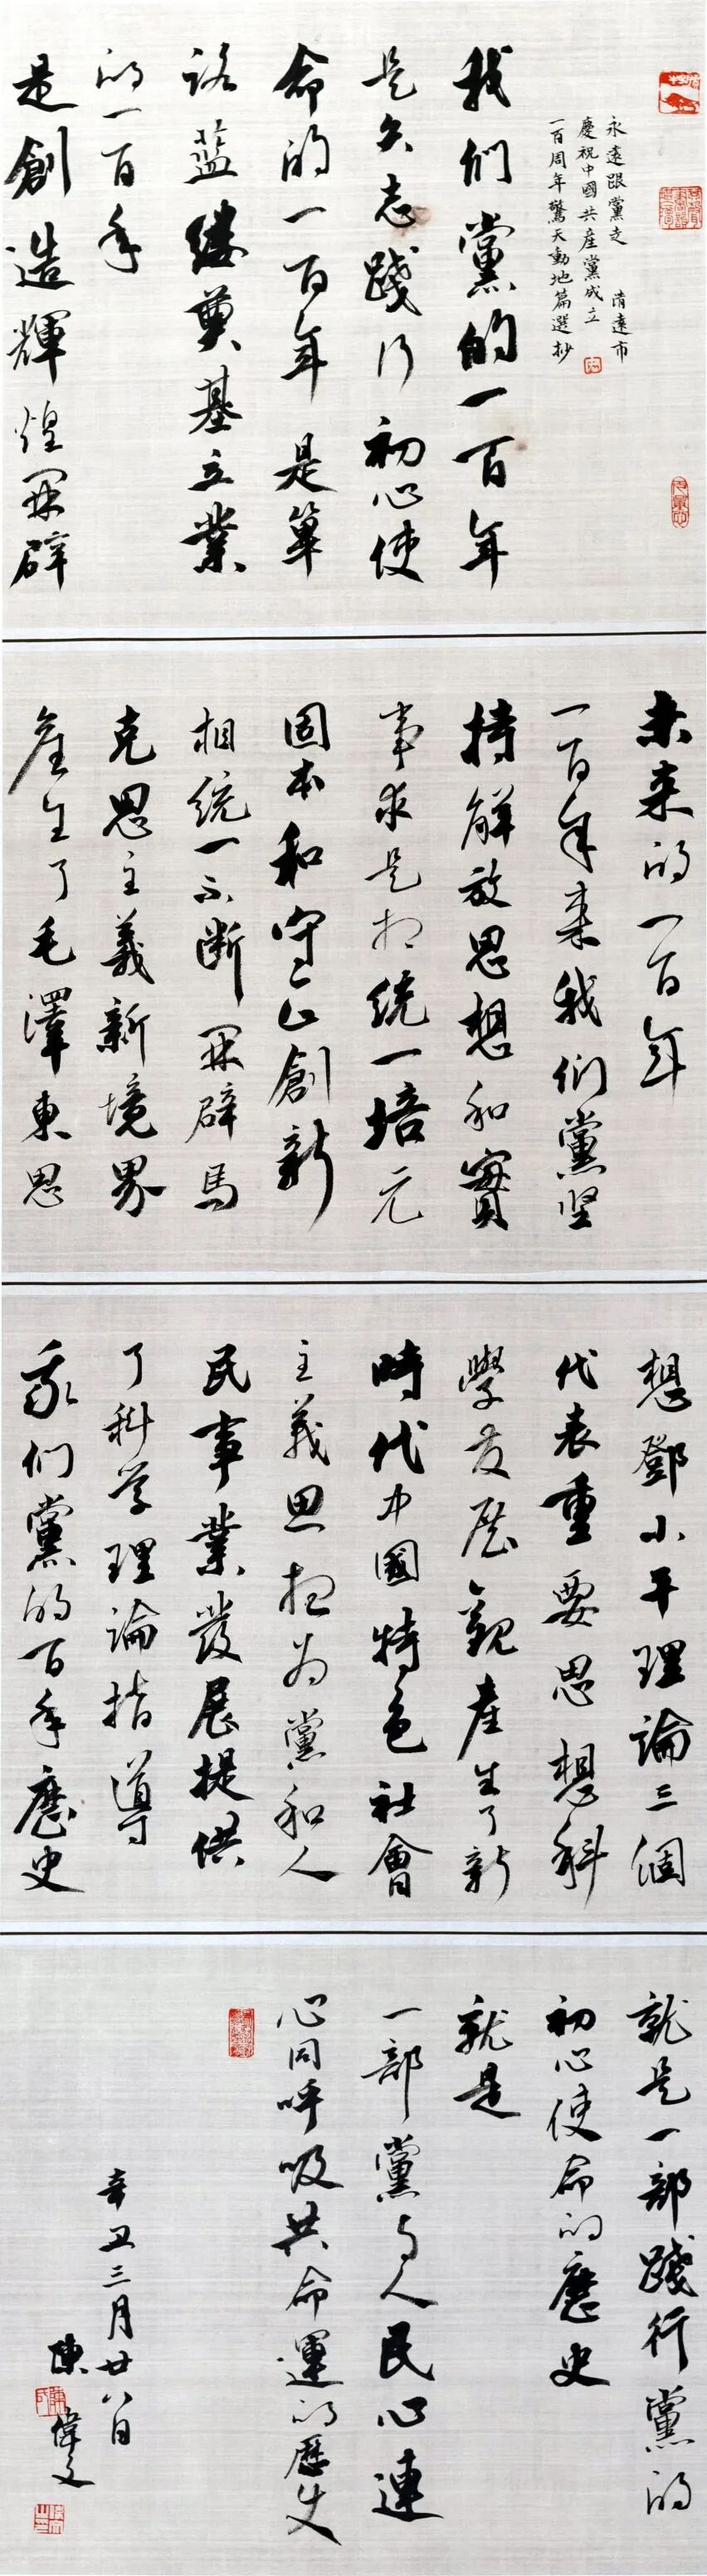 永遠跟黨走 清遠市
慶祝中國共產黨成立
一百周年驚天動地篇選抄
我们黨的一百年
是矢志踐行初心使
命的一百年是篳
路蓝缕奠基立業
的一百年
是創造輝煌開辟
未来的一百年
一百年来我们黨坚
持解放思想和實
事求是相统一培元
固本和守正創新
相统一不断開辟馬
克思主義新境界
產生了毛澤東思
想鄧小平理論三個
代表重要思想科
學发展觀產生了新
時代中國特色社會
主義思想为黨和人
民事業發展提供
了科学理論指導
我们黨的百年歷史
就是一部踐行黨的
初心使命的歷史
就是
一部黨与人民心連
心同呼吸共命運的歷史
辛丑三月廿八日
陳偉文